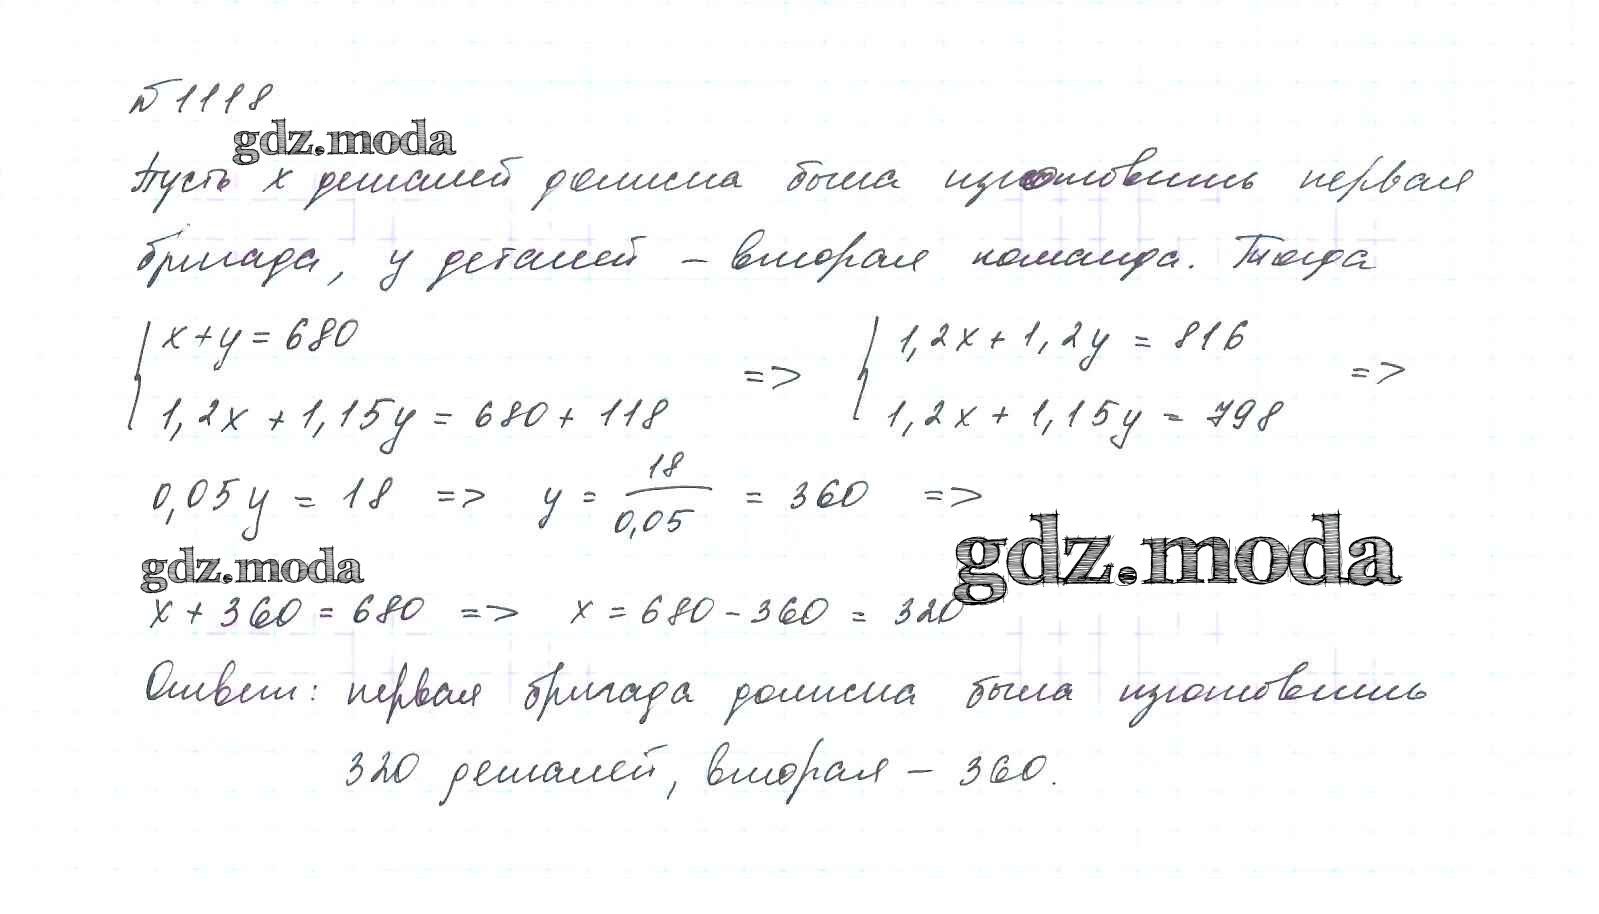 № 1118
gdz.moda
Пусть x деталей должна была изготовить первая
бригада, y деталей – вторая команда. Тогда
{ x + y = 680 => { 1,2x + 1,2y = 816 =>
1,2x + 1,15y = 680 + 118 1,2x + 1,15y = 798
0,05y = 18 => y = 18/0,05 = 360 =>
gdz.moda
gdz.moda
x + 360 = 680 => x = 680 - 360 = 320
Ответ: первая бригада должна была изготовить
320 деталей, вторая – 360.